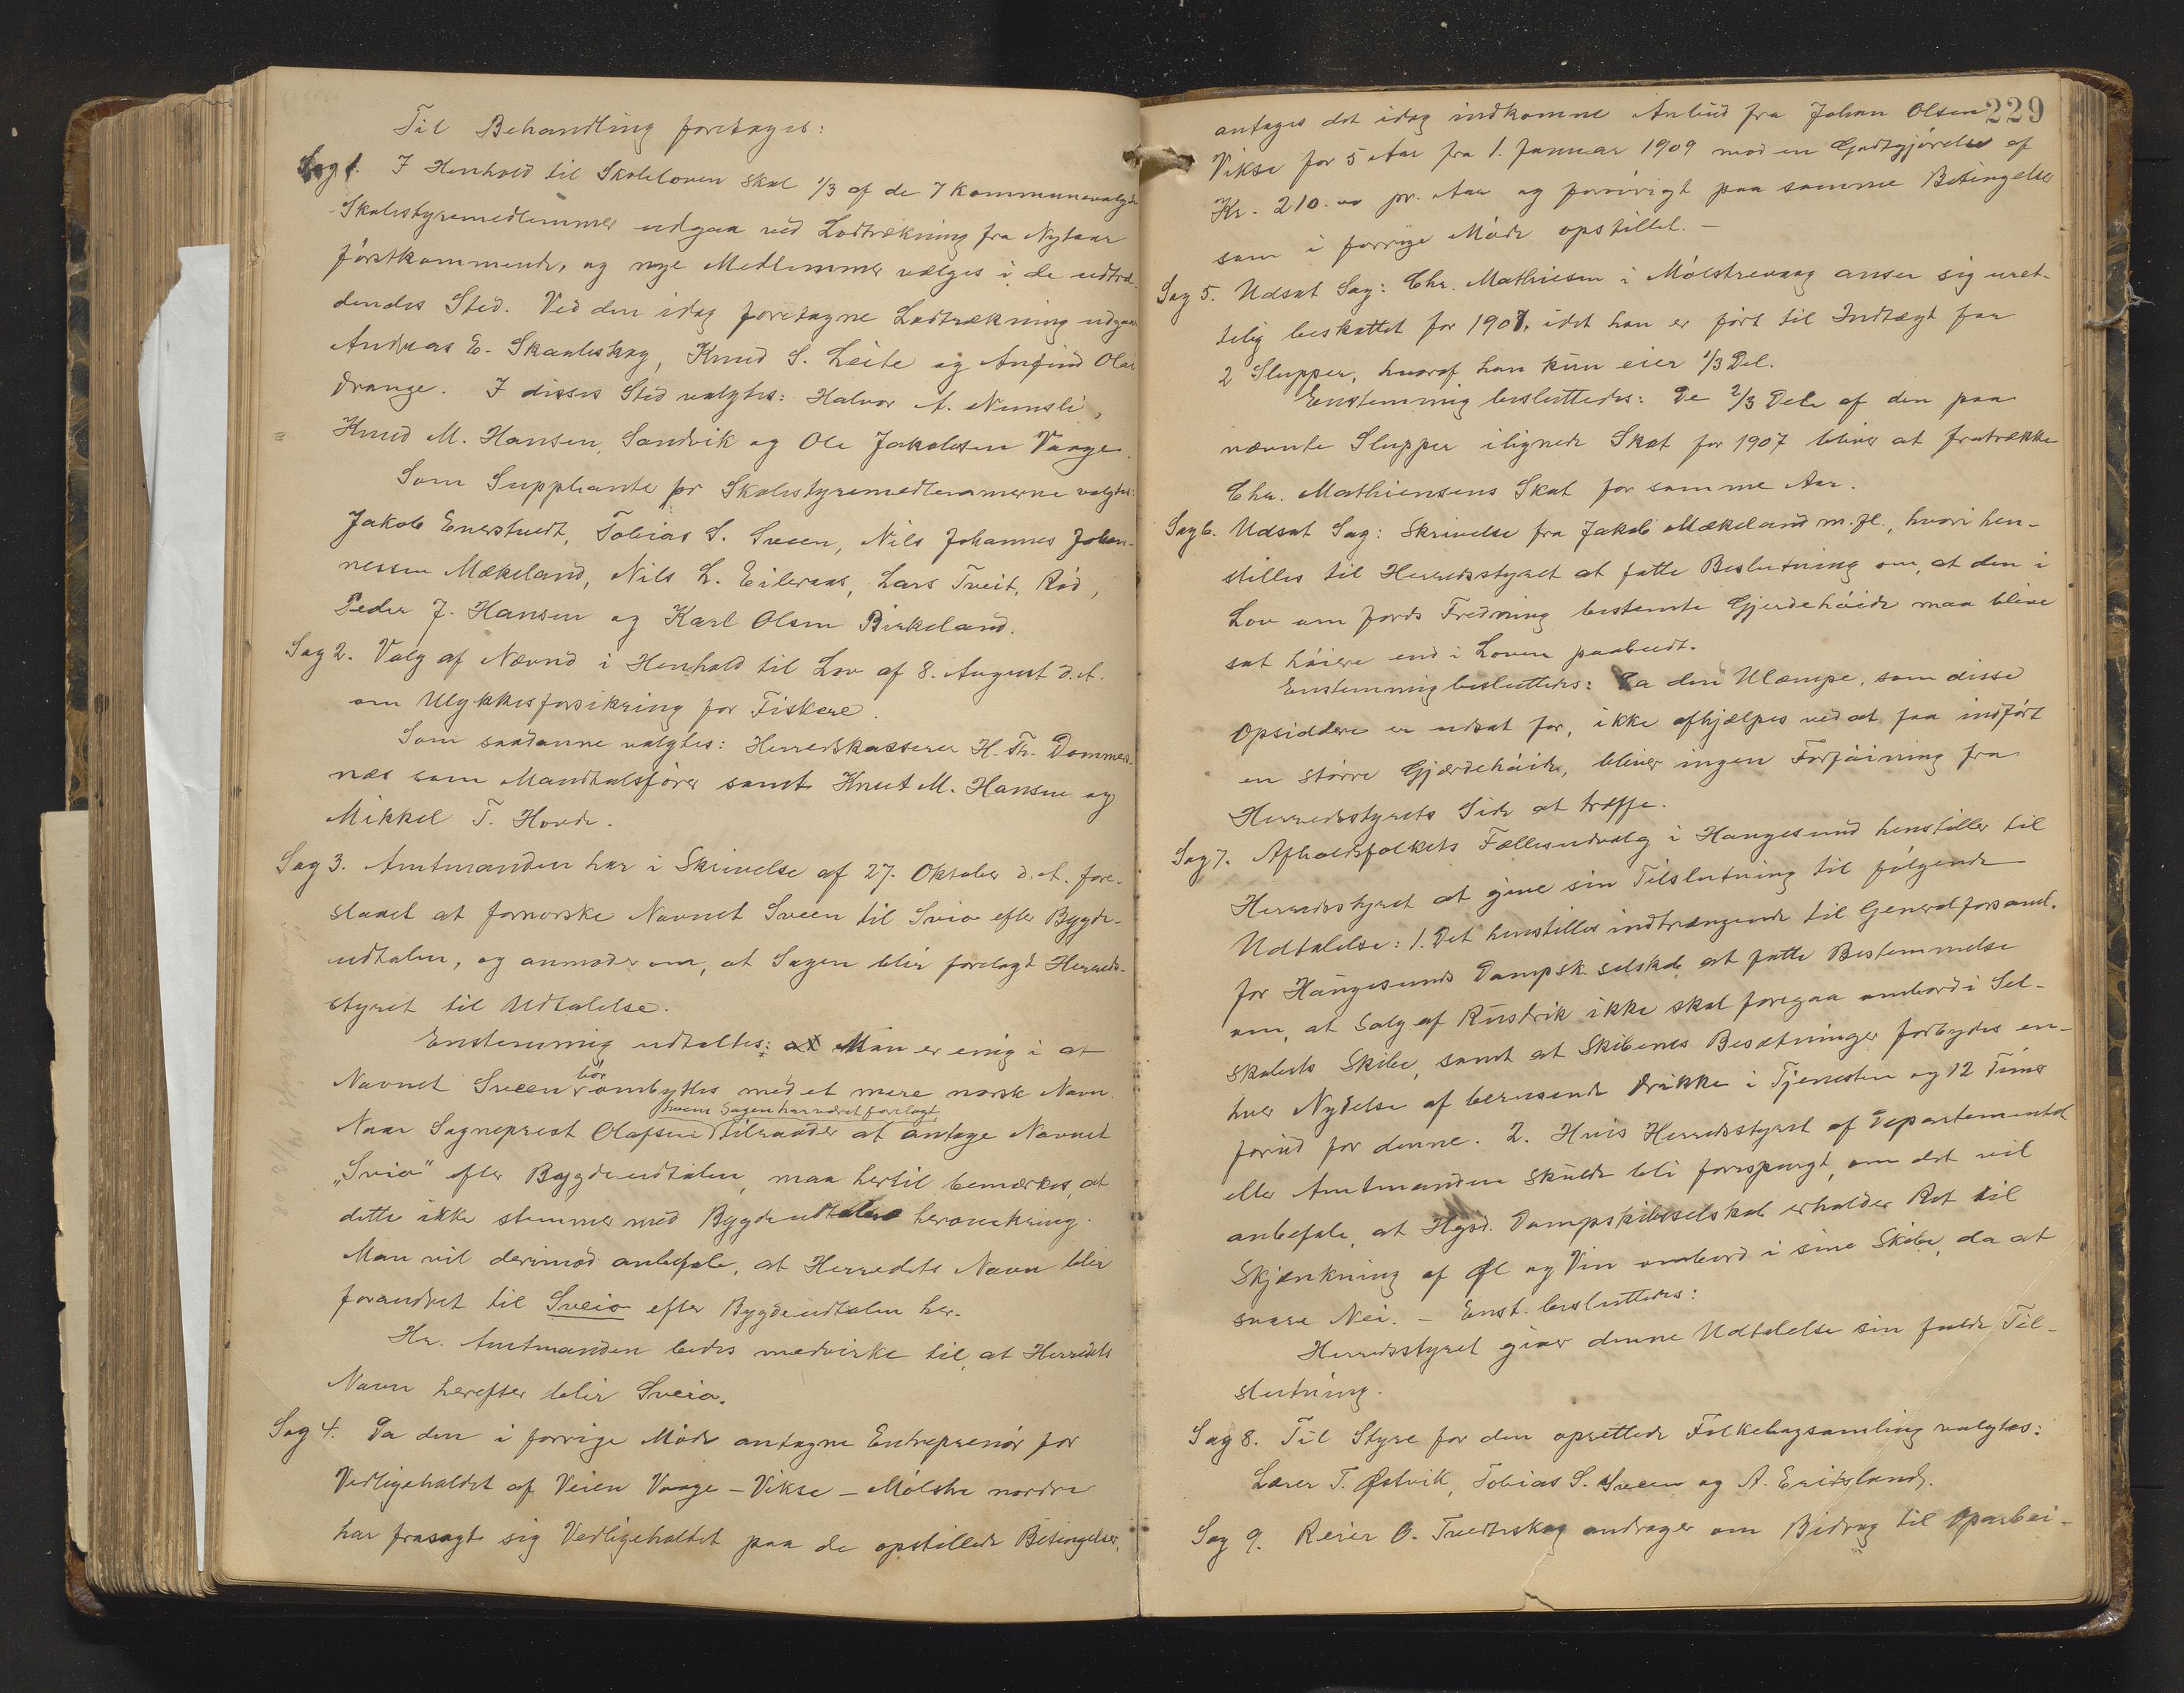 Til Behandling foretages:
Sag 1. I Henhold til Skoleloven skal 1/3 af de 7 kommunevalgte
Skolestyremedlemmer udgaa ved Lodtrækning fra Nytaar
førstkommende, og nye Medlemmer vælges i de udtræ-
dendes Sted. Ved den idag foretagne Lodtrækning udgaar
Andreas E. Skaaleskog, Knud S. Leite og Anfind Olai
Drange. I disses Sted valgtes: Halvor A. Nernsli,
Knud M. Hansen, Sandvik og Ole Jakobsen Vaage.
Som Suppleanter for Skolestyremedlemmerne valgtes:
Jakob Enerstvedt, Tobias S. Sveen, Nils Johannes Johan-
nessen Mækeland, Nils L. Eileraas, Lars Tveit, Rød,
Peder J. Hansen og Karl Olsen Birkeland.
Sag 2. Valg af Nævnd i Henhold til Lov af 8. August d.A.
om Ulykkesforsikring for Fiskere.
Som saadanne valgtes: Herredskasserer H. Th. Dommers-
næs som Mandtalsfører samt Knut M. Hansen og
Mikkel T. Hovde.
Sag 3. Amtmanden har i Skrivelse af 27. Oktober d.A. fore-
slaaet at fornorske Navnet Sveen til Svio efter Bygde-
udtalen, og anmoder om, at Sagen blir forelagt Herreds-
styret til Udtalelse.
Enstemmig udtaltes: at Man er enig i at
Navnet Sveen bør ombyttes med et mere norsk Navn.
hvem Sagen har været forelagt
Naar Sogneprest Olafsen tilraader at antage Navnet
„Svio" efter Bygdeudtalen, maa hertil bemærkes, at
dette ikke stemmer med Bygdeudtalen heromkring.
Man vil derimod anbefale, at Herredets Navn blir
forandret til Sveio efter Bygdeudtalen her.
Hr. Amtmanden bedes medvirke til, at Herredets
Navn herefter blir Sveio.
Sag 4. Da den i forrige Møde antagne Entreprenør for
Vedligeholdet af Veien Vaage - Vikse - Mølstre nordre
har frasagt sig Vedligeholdet paa de opstillede Betingelser,
229
antages det idag indkomne Anbud fra Johan Olsen
Vikse for 5 Aar fra 1. Januar 1909 mod en Godtgjørelse af
Kr. 210.00 pr. Aar og forøvrigt paa samme Betingelser
som i forrige Møde opstillet. -
Sag 5. Udsat Sag: Chr. Mathiesen i Mølstrevaag anser sig uret-
telig beskattet for 1907, idet han er ført til Indtægt for
2 Slupper, hvoraf han kun eier 1/3 Del.
Enstemmig besluttedes: De 2/3 Dele af den paa
nævnte Slupper ilignede Skat for 1907 bliver at fratrække
Chr. Mathiensens Skat for samme Aar.
Sag 6. Udsat Sag: Skrivelse fra Jakob Mækeland m.fl., hvori hen-
stilles til Herredsstyret at fatte Beslutning om, at den i
Lov om Jords Fredning bestemte Gjerdehøide maa blive
sat høiere end i Loven paabudt.
Enstemmig besluttedes: Da den Ulæmpe, som disse
Opsiddere er udsat for, ikke afhjælpes ved at faa indført
en større Gjærdehøide, bliver ingen Forføining fra
Herredsstyrets Side at træffe.
Sag 7. Afholdsfolkets Fællesudvalg i Haugesund henstiller til
Herredsstyret at give sin Tilslutning til følgende
Udtalelse: 1. Det henstilles indtrængende til Generalforsaml.
for Haugesunds Dampsk.selskab at fatte Bestemmelse
om, at Salg af Rusdrik ikke skal foregaa ombord i Sel-
skabets Skibe, samt at Skibenes Besætninger forbydes en-
hver Nydelse af berusende Drikke i Tjenesten og 12 Timer
forud for denne. 2. Hvis Herredsstyret af Departementet
eller Amtmanden skulde bli forespurgt, om det vil
anbefale, at Hgsd. Dampskibsselskab erholder Ret til
Skjænkning af Øl og Vin ombord i sine Skibe, da at
svare Nei. - Enst. besluttedes:
Herredsstyret giver denne Udtalelse sin fulde Til-
slutning.
Sag 8. Til Styre for den oprettede Folkebogsamling valgtes:
Lærer T. Østvik, Tobias S. Sveen og A. Eritsland.
Sag 9. Reier O. Tvedteskog andrager om Bidrag til Oparbei-